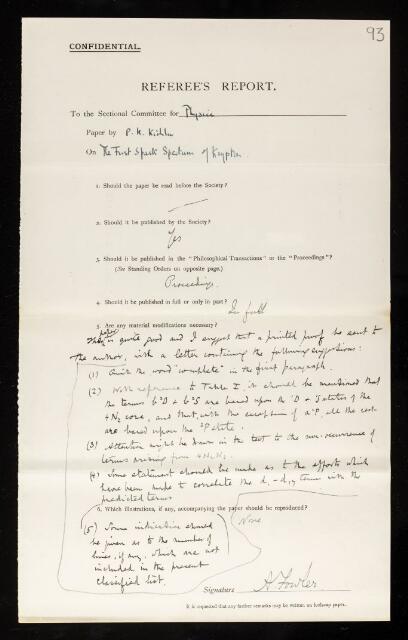 93
CONFIDENTIAL.
REFEREE'S REPORT.
To the Sectional Committee for Physics
Paper by P. K. Kichlu
On The First Spark Spectrum of Krypton.
1. Should the paper be read before the Society?
—
2. Should it be published by the Society?
Yes
3. Should it be published in the "Philosophical Transactions" or the "Proceedings"?
(See Standing Orders on opposite page.)
Proceedings.
4. Should it be published in full or only in part?
In full
5. Are any material modifications necessary?
This paper is quite good and I suggest that a printed proof be sent to
the author, with a letter containing the following suggestions:
(1) Omit the word "complete" in the first paragraph.
(2) With reference to Table I, it should be mentioned that
the terms b²D + b²S are based upon the ¹D + ¹S states of the
4N₂ core, and that, with the exception of a²P, all the rest
are based upon the ³P state.
(3) Attention might be drawn in the text to the non-occurrence of
terms arising from
(4) Some statement should be made as to the efforts which
have been made to correlate the d₁ - d₁₄ terms with the
predicted terms
6. Which illustrations, if any, accompanying the paper should be reproduced?
None
(5) Some indication should
be given as to the number of
lines, if any, which are not
included in the present
classified list.
Signature A. Fowler.
It is requested that any further remarks may be written on foolscap paper.